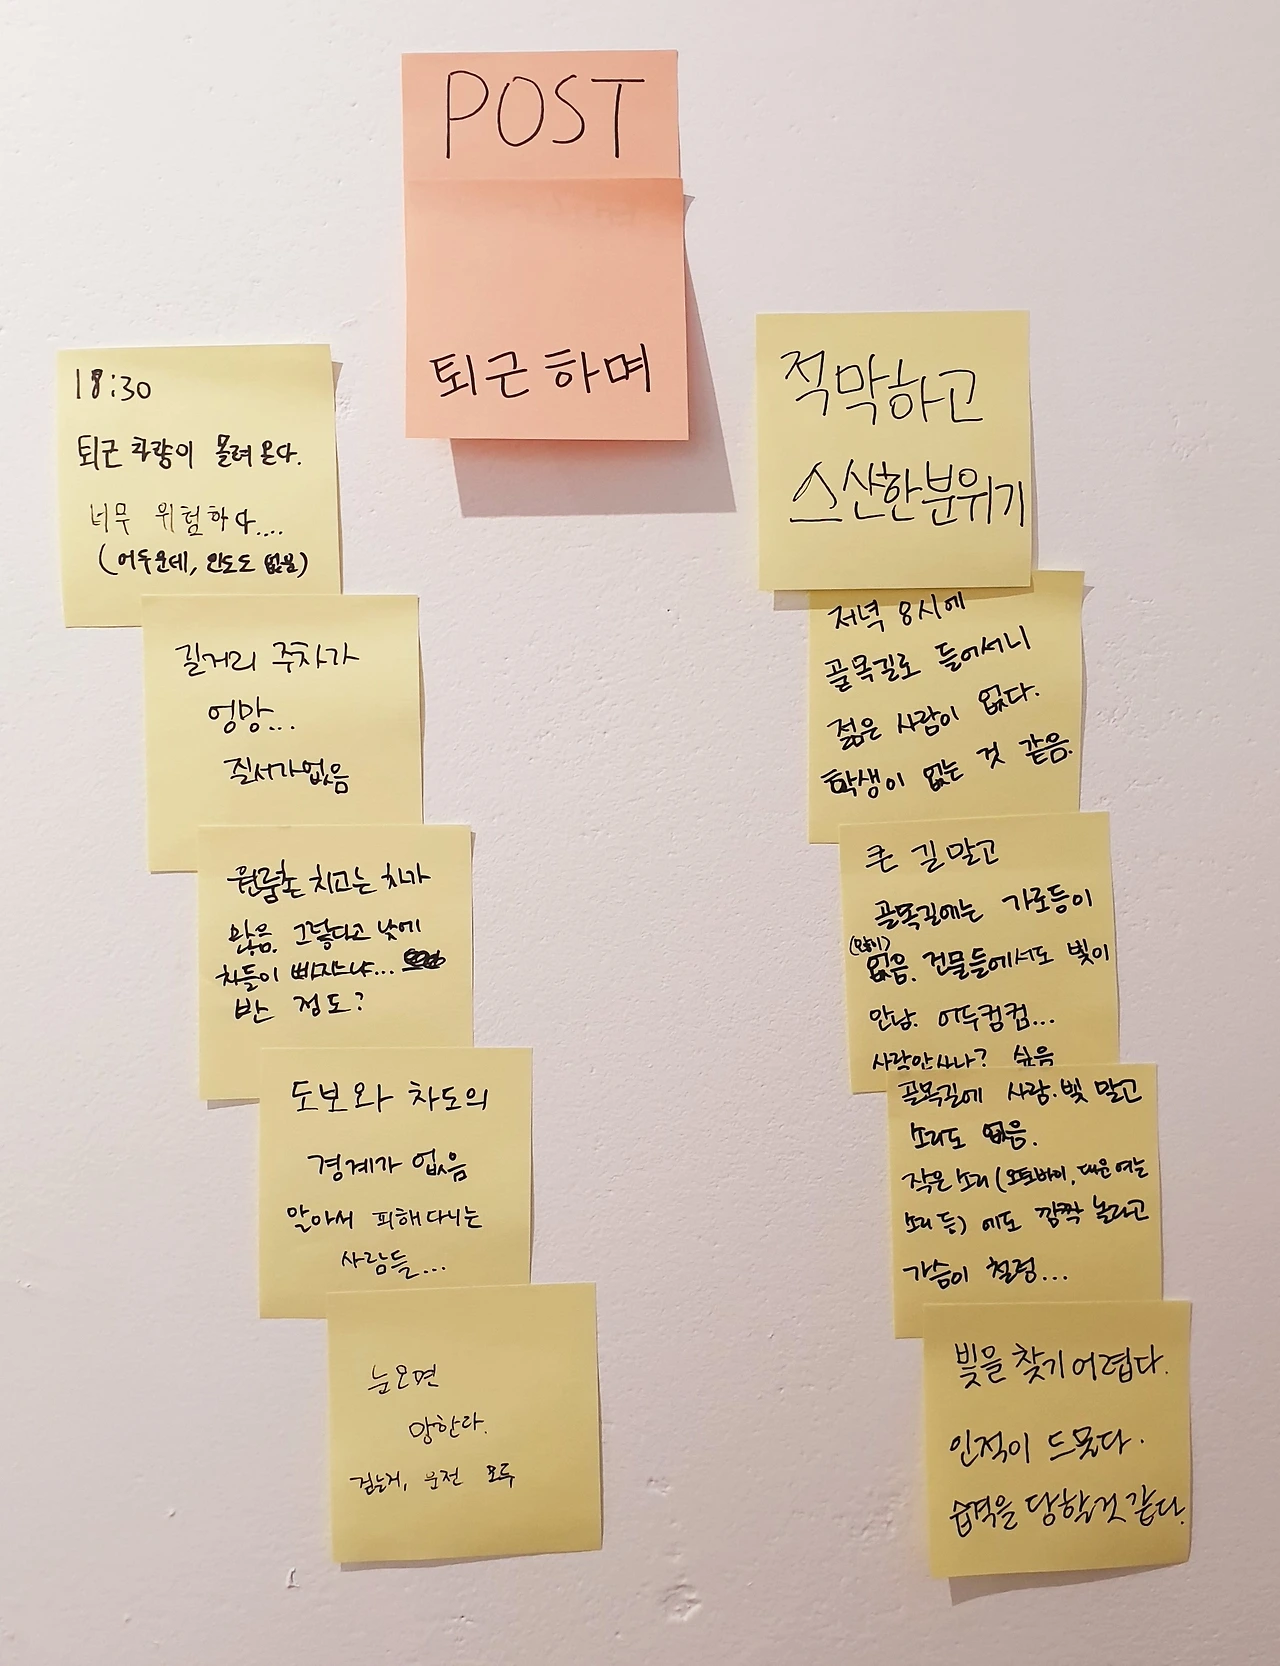 POST
퇴근하며
18:30
퇴근 차량이 몰려온다.
너무 위험하다....
(어두운데, 인도도 없음)
길거리 주차가
엉망...
질서가없음
원룸촌 치고는 차가
많음. 그렇다고 낮에
차들이 빠지냐...
반 정도?
도보와 차도의
경계가 없음
알아서 피해다니는
사람들...
눈오면
망한다.
걷는거, 운전 모두
적막하고
스산한분위기
저녁 8시에
골목길로 들어서니
젊은 사람이 없다.
학생이 없는 것 같음.
큰 길 말고
골목길에는 가로등이
(많이)
없음. 건물들에서도 빛이
안남. 어두컴컴...
사람안사나? 싶음
골목길에 사람.빛 말고
소리도 없음.
작은 소리(오토바이, 대문 여는
소리 등)에도 깜짝 놀라고
가슴이 철렁...
빛을 찾기 어렵다.
인적이 드물다.
습격을 당할것 같다.